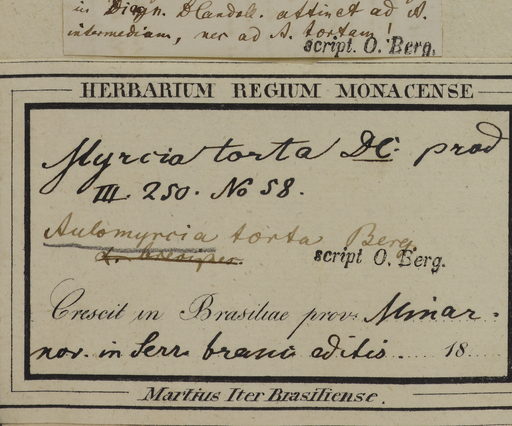 in Diagn. DCandoll. attinet ad A.
intermediam, nec ad A. tortam!
script. O. Berg.
HERBARIUM REGIUM MONACENSE
Myrcia torta DC. prod
III 250. No 58.
Aulomyrcia torta Berg
script O. Berg.
Crescit in Brasiliae prov: Minar.
nov. in Serr. editis 18
Martius Iter Brasiliense.